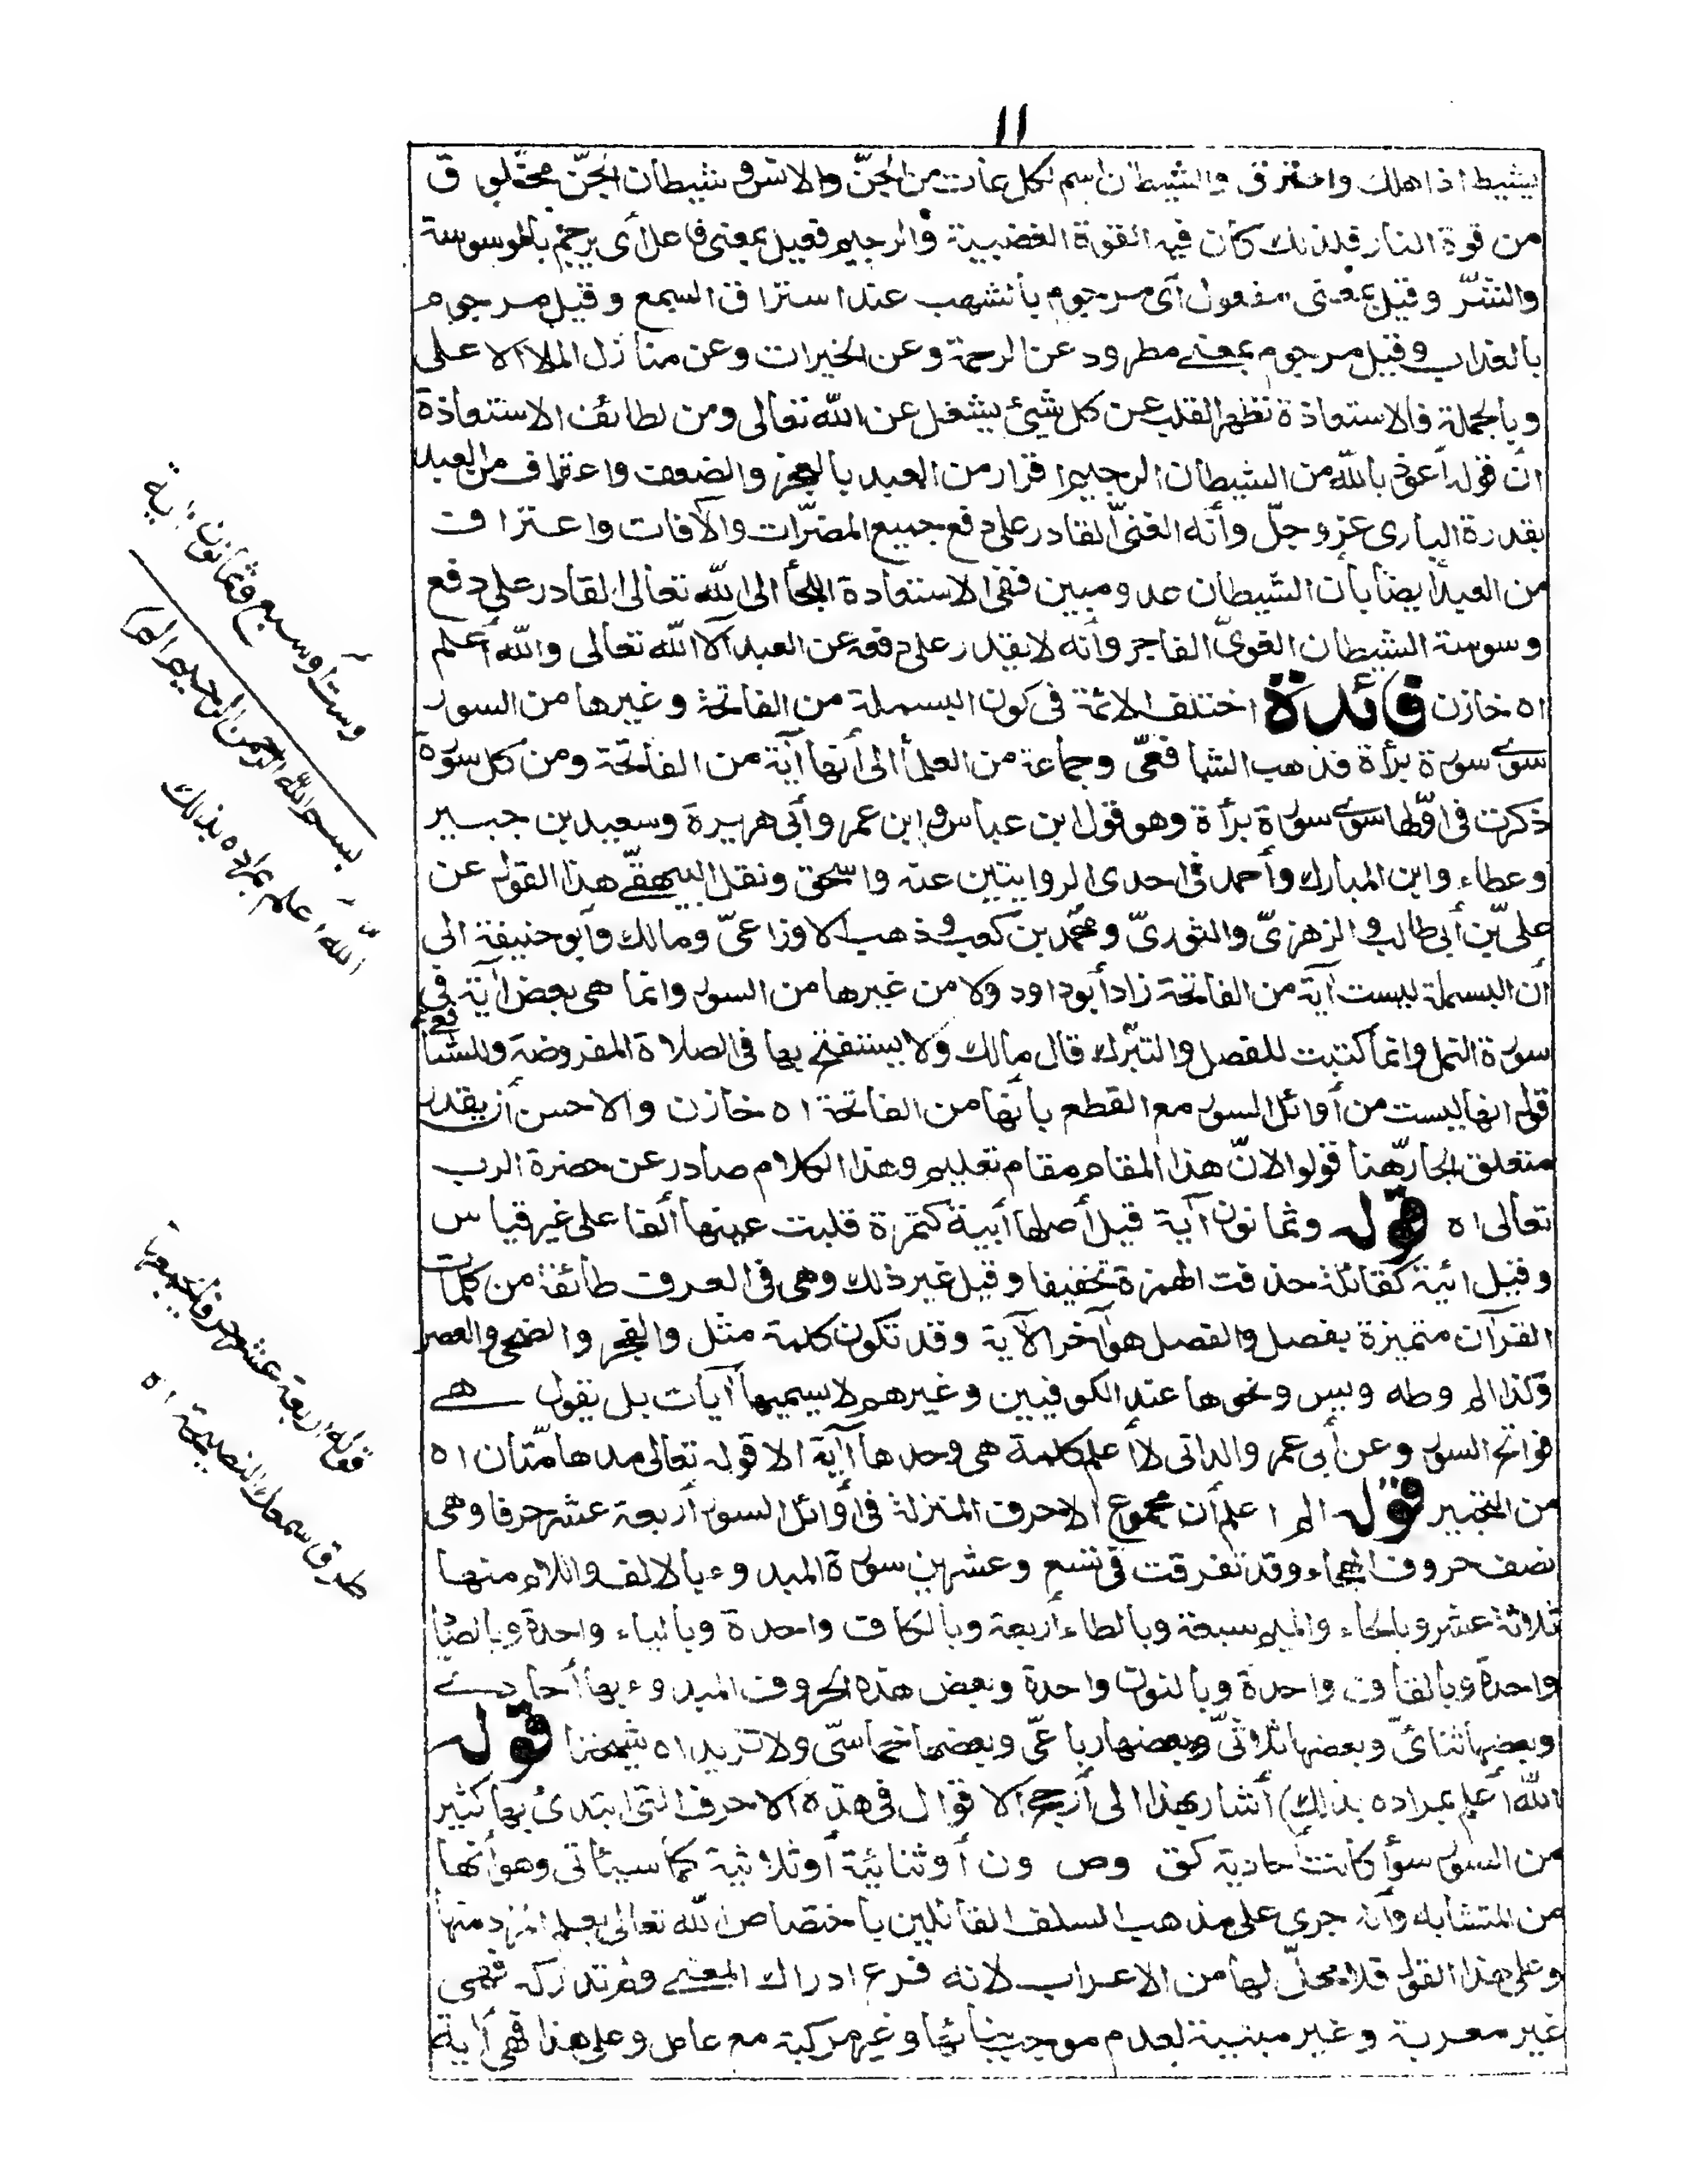 ١١
يشيط اذا هلك واحترق والشيطان اسم لكل عات من الجنّ والانس و شيطان الجنّ مخلوق
من قوة النار فلذلك كان فيه القوة الغضبية والرجيم فعيل بمعنى فاعل أى يرجم بالوسوسة
والشرّ وقيل بمعنى مفعول أى مرجوم بالشهب عند استراق السمع وقيل مرجوم
بالعذاب وقيل مرجوم بمعنى مطرود عن الرحمة وعن الخيرات وعن منازل الملا الاعلى
وبالجملة فالاستعاذة تطهر القلب عن كل شيئ يشغل عن الله تعالى ومن لطائف الاستعاذة
انّ قوله أعوذ بالله من الشيطان الرجيم اقرار من العبد بالعجز والضعف واعتراف من العبد
بقدرة البارى عز وجلّ وأنه الغنىّ القادر على دفع جميع المضرّات والآفات واعتراف
من العبد أيضا بأن الشيطان عدو مبين ففى الاستعاذة اللجأ الى الله تعالى القادر على دفع
وسوسة الشيطان القوىّ الفاجر وأنه لا يقدر على دفعه عن العبد الا الله تعالى والله أعلم
اه خازن فائدة اختلف الائمة فى كون البسملة من الفاتحة وغيرها من السور
سوى سورة برأة فذهب الشافعىّ وجماعة من العلمأ الى أنها آية من الفاتحة ومن كل سورة
ذكرت فى أوّلها سوى سورة برأة وهو قول ابن عباس و ابن عمر وأبى هريرة وسعيد بن جبير
وعطاء وابن المبارك وأحمد فى احدى الروايتين عنه واسحق ونقل البيهقىّ هذا القول عن
علىّ بن أبى طالب و الزهرىّ والثورىّ ومحمد بن كعب و ذهب الاوزاعىّ ومالك وأبو حنيفة الى
أن البسملة ليست آية من الفاتحة زاد أبو داود ولا من غيرها من السور وانما هى بعض آية فى
سورة النمل وانما كتبت للفصل والتبرّك قال مالك ولا يستفتح بها فى الصلاة المفروضة وللشافعى
قول انها ليست من أوائل السور مع القطع بأنها من الفاتحة اه خازن والاحسن أن يقدر
متعلق الجارّ هنا قولوا لانّ هذا المقام مقام تعليم وهذا الكلام صادر عن حضرة الرب
تعالى اه قوله وثمانون آية قيل أصلها أيية كتمرة قلبت عينها ألفا على غير قياس
وقيل ائية كقائلة حذفت الهمزة تخفيفا وقيل غير ذلك وهى فى العرف طائفة من كلمات
القرآن متميزة بفصل والفصل هو آخر الآية وقد تكون كلمة مثل والفجر والضحى والعصر
وكذا الم وطه ويس ونحوها عند الكوفيين وغيرهم لا يسميها آيات بل يقول هى
فواتح السور وعن أبى عمر والدانى لا أعلم كلمة هى وحدها آية الا قوله تعالى مدهامّتان اه
من التحبير قوله الم اعلم أن مجموع الاحرف المنزلة فى أوائل السور أربعة عشر حرفا وهى
نصف حروف الهجاء وقد تفرقت فى تسع وعشرين سورة المبدوء بالالف واللام منها
ثلاثة عشر وبالحاء والميم سبعة وبالطاء أربعة وبالكاف واحدة وبالياء واحدة وبالصاد
واحدة وبالقاف واحدة وبالنون واحدة وبعض هذه الحروف المبدوء بها أحادى
وبعضها ثنائىّ وبعضها ثلاثىّ وبعضها رباعىّ وبعضها خماسىّ ولا تزيد اه شيخنا قوله
الله أعلم بمراده بذلك) أشار بهذا الى أرجح الاقوال فى هذه الاحرف التى ابتدئ بها كثير
من السور سوأ كانت أحادية كق وص ون أو ثنائية أو ثلاثية كما سيأتى وهو أنها
من المتشابه وأنه جرى على مذهب السلف القائلين باختصاص الله تعالى بعلم المراد منها
وعلى هذا القول فلا محلّ لها من الاعراب لانه فرع ادراك المعنى ولم ندركه فهى
غير معربة وغير مبنية لعدم موجب بنائها وغير مركبة مع عامل وعلى هذا فهى آية
وست أو سبع وثمانون آية
بسم الله الرحمن الرحيم الم)
الله أعلم بمراده بذلك
قوله أربعة عشر حرفا
طرق سمعك النصيحة اه